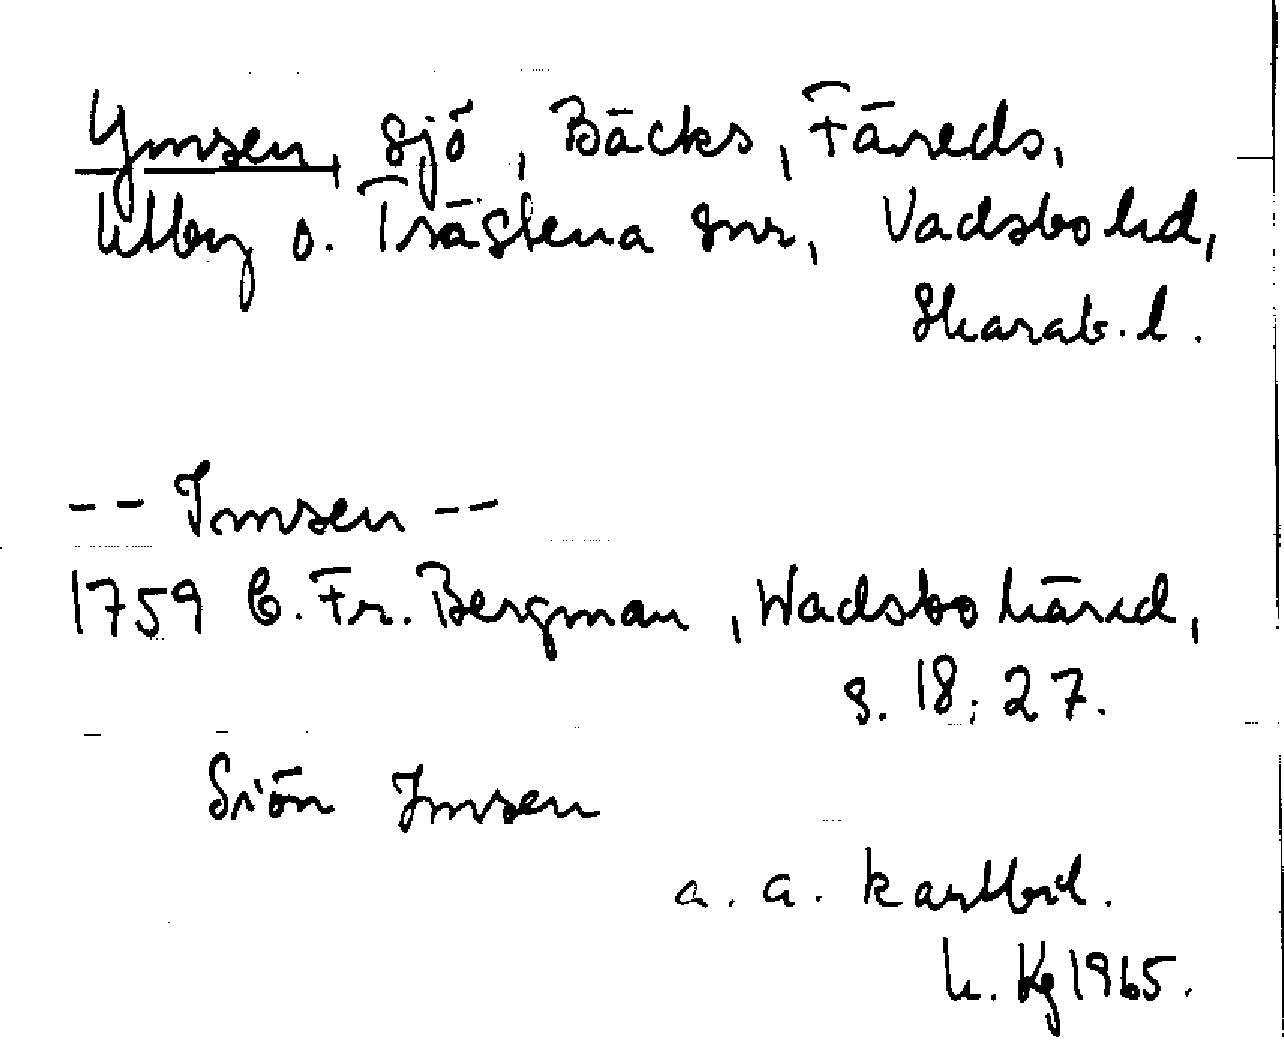 Ymsen, sjö, Bäcks, Färeds,
Utby o. Trästena snr, Vadsbo hd,
Skarab. l.
-- Imsen --
1759 C. Fr. Bergman, Wadsbo härad,
s. 18; 27.
Siön Imsen
a. a. kartbil.
h. Kg 1965.